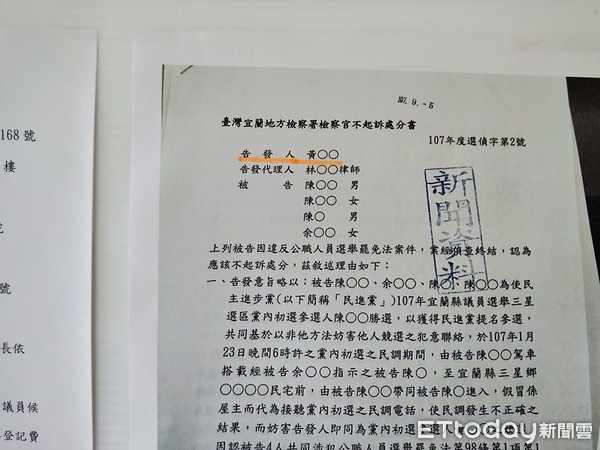 168號
樓
號
長依
議員候
登記費
107. 9. -6
臺灣宜蘭地方檢察署檢察官不起訴處分書
107年度選偵字第2號
告發人 黃〇〇
告發代理人 林〇〇律師
被告 陳〇〇 男
陳〇〇 女
陳〇 男
余〇〇 女
新聞資料
上列被告因違反公職人員選舉罷免法案件,業經偵查終結,認為
應該不起訴處分,茲敘述理由如下:
一、告發意旨略以:被告陳〇〇、余〇〇、陳〇、陳〇〇為使民
主進步黨(以下簡稱「民進黨」)107年宜蘭縣議員選舉三星
選區黨內初選參選人陳〇〇勝選,以獲得民進黨提名參選,
共同基於以非他方法妨害他人競選之犯意聯絡,於107年1月
23日晚間6時許之黨內初選之民調期間,由被告陳〇〇駕車
搭載經被告余〇〇指示之被告陳〇,至宜蘭縣三星鄉
〇〇〇〇民宅前,由被告陳〇〇帶同被告陳〇進入,假冒係
屋主而代為接聽黨內初選之民調電話,使民調發生不正確之
結果,而妨害告發人即同為黨內初選
因認被告4人共同涉犯公職人員選舉罷免法第98條第1項第1
ETtoday新聞雲